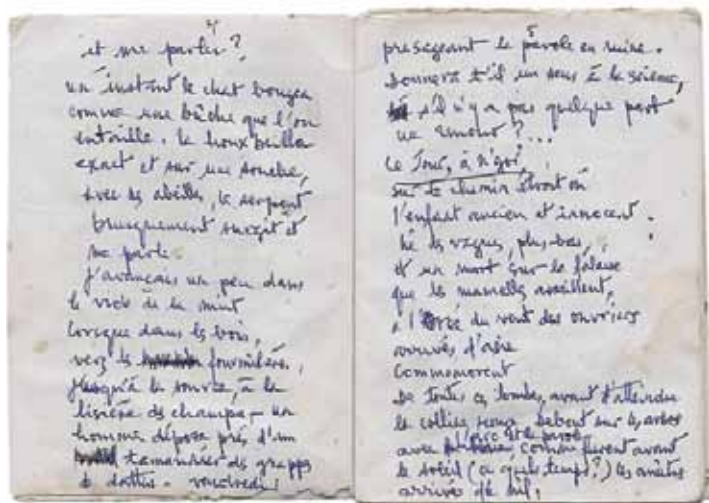 4
et me parler?
un instant le chat bougea
comme une bûche que l'on
entaille. le houx brilla
exact et sur une souche,
avec les abeilles, le serpent
brusquement surgit et
me parle.
J'avançais un peu dans
le vide de la nuit
lorsque dans les bois,
vers les fourmilières,
jusqu'à la source, à la
lisière des champs — un
homme déposa près d'un
tamarinier des grapps
de dattes. vendredi!
5
présageant la parole en ruine.
Donnera t'il un sens à la science,
s'il n'y a pas quelque part
un remord?...
Ce Jour, à N'goï,
sur le chemin étroit où
l'enfant ancien et innocent.
né les vagues, plus bas,
et un mort sur la falaise
que les mamelles
du vent des ouvriers
arrivés d'
commencent
De toutes ces tombes, avant d'atteindre
la colline, debout sur les arbres
avec
avant
le soleil (à quel temps?) les
arrivés de